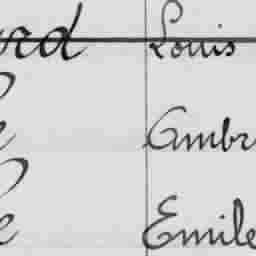 rd Louis
e Ambr
e Emile